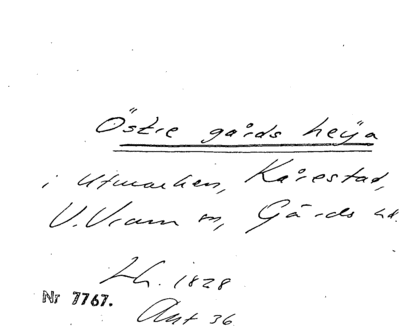 Östre gårds heÿa
i Utmarken, Kårestad,
V. Vram sn, Gärds hd.
Lh. 1828
Nr 7767.
Akt 36